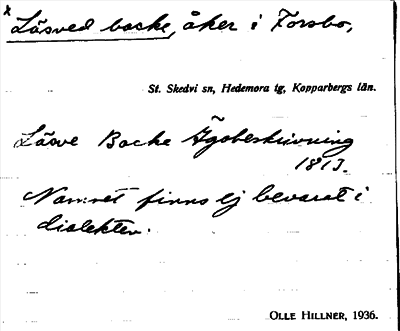 x Låsved backe, åker i Forsbo,
St. Skedvi sn, Hedemora tg, Kopparbergs län.
Låsve Backe Ägobeskrivning
1813.
Namnet finns ej bevarat i
dialekten.
OLLE HILLNER, 1936.